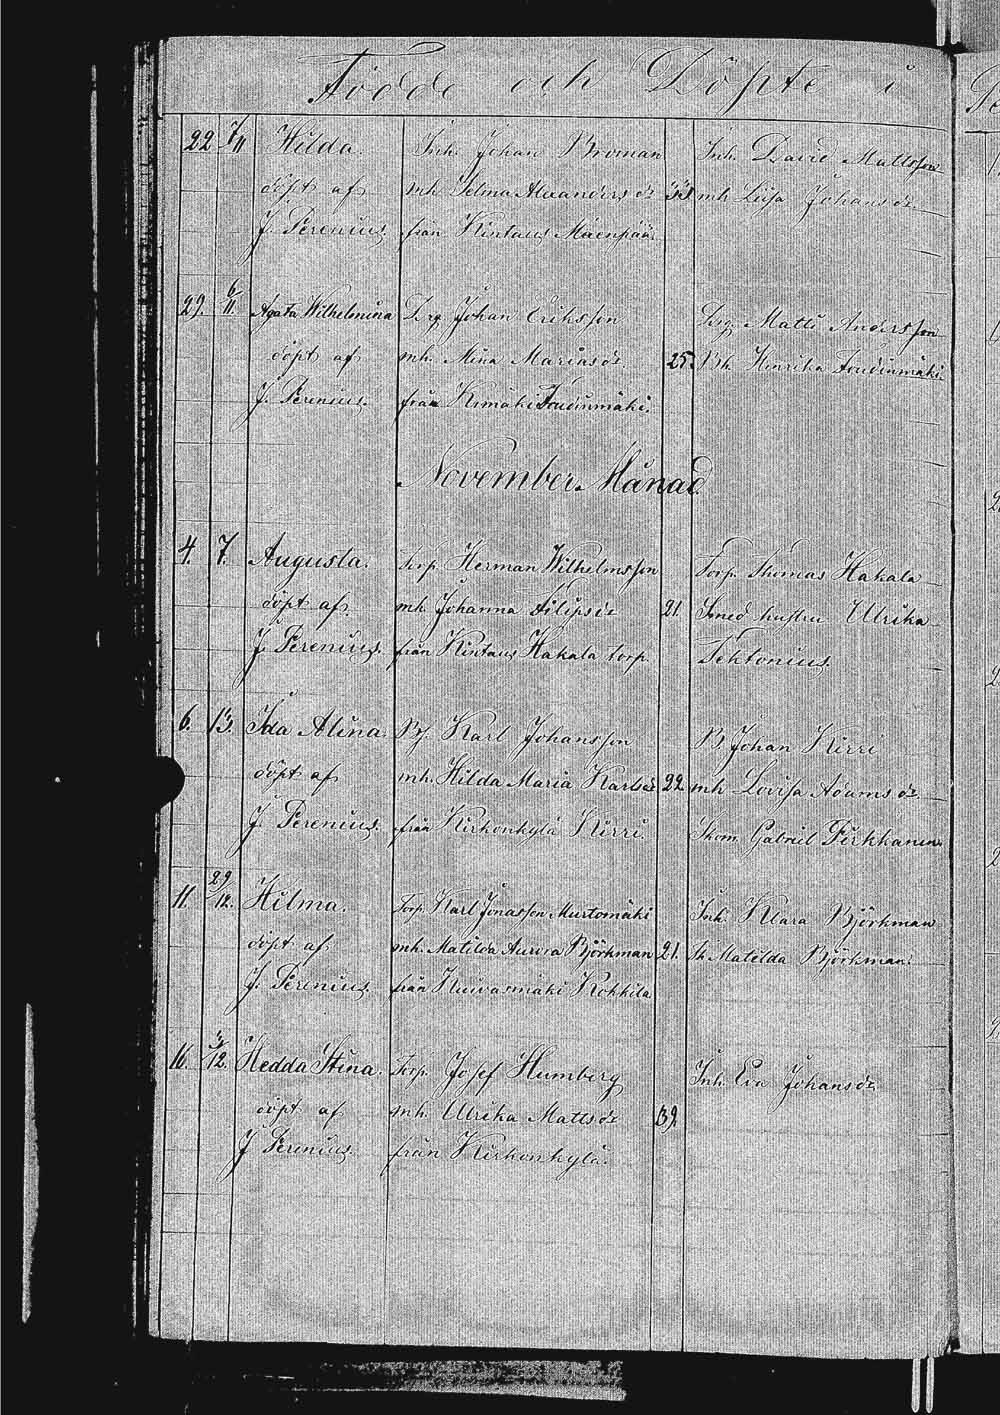 Födde och Döpte i
22 7/11 Hilda. Inh. Johan Broman Inh. David Mattsson
döpt af mh. Selma Alexanders dr mh Lisa Johans dr
J. Perenius från Kintaus Mäenpää.
29. 6/11. Agata Wilhelmina Drg Johan Eriksson Drg Matts Andersson
döpt af mh. Mina Marias dr. 25. Bh. Henrika Joudinmäki.
J. Perenius. från Kimäki Joudinmäki.
November Månad
4. 7. Augusta. Torp. Herman Wilhelmsson Torp. Thomas Hakala
döpt af. mh Johanna Filips dr 21. Smed hustru Ulrika
J. Perenius. från Kintaus Hakala torp. Tektonius.
6. 13. Ida Alina. Bs. Karl Johansson B Johan Kirri
döpt af mh. Hilda Maria Karls dr 22 mh Lovisa Adams dr.
J. Perenius. från Kirkonkylä Kirri. Skom. Gabriel Pirkkanen.
11. 29/12. Hilma. Torp. Karl Jonasson Murtomäki Inh. Klara Björkman
döpt af. mh. Matilda Aurora Björkman 21. Matilda Björkman.
J. Perenius. från Kuivasmäki Kokkila
16. 3/12. Hedda Stina. Torp. Josef Humberg Inh. Eva Johans dr.
döpt af mh. Ulrika Matts dr 39.
J Perenius. från Kirkonkylä.